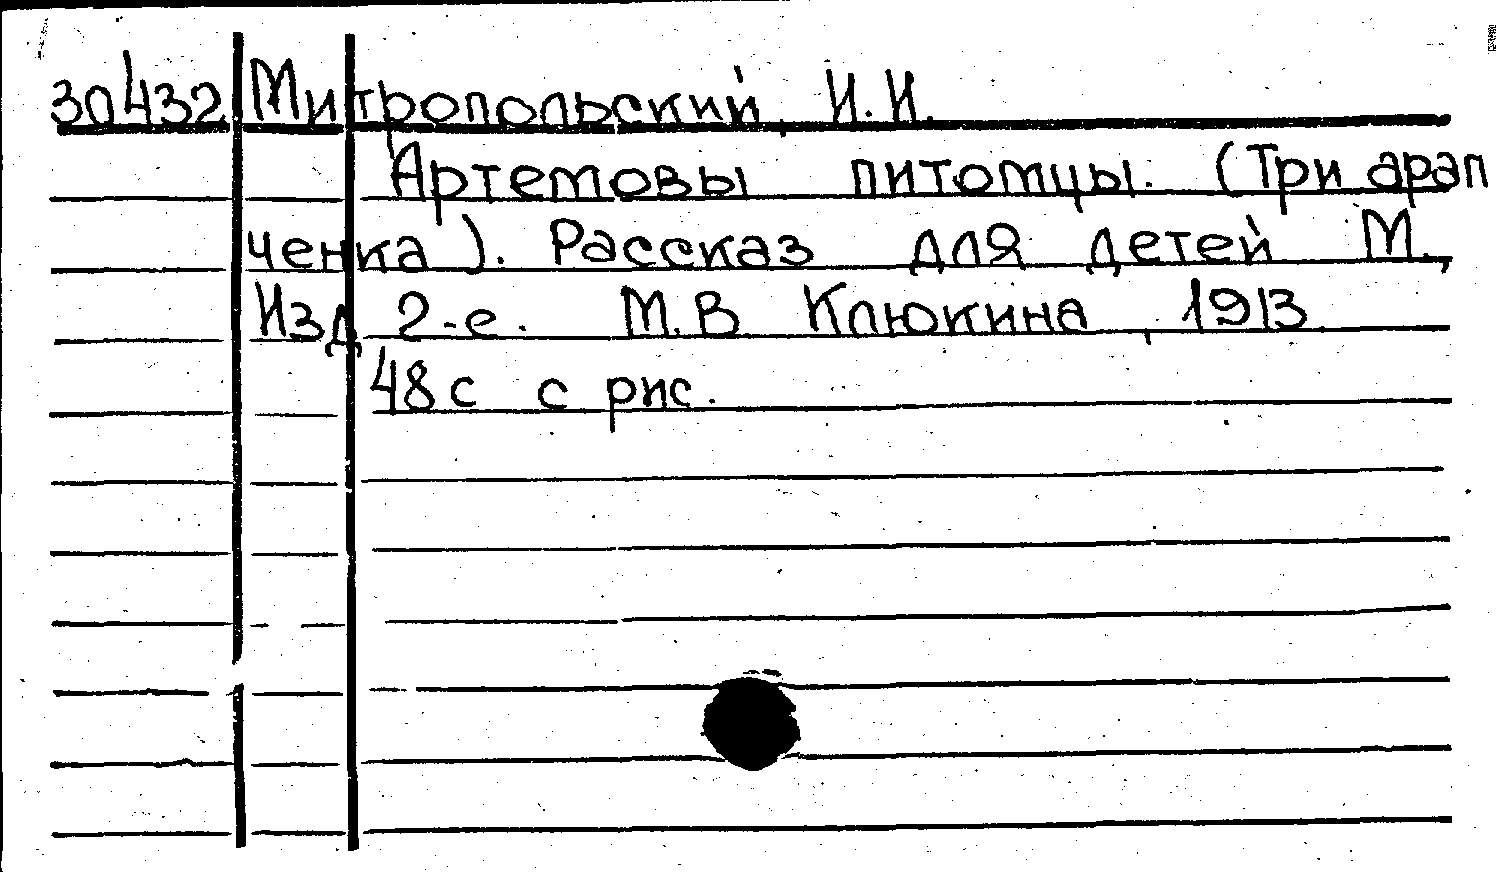 30432 Митропольский, И.И.
Артемовы питомцы. (Три арап
ченка). Рассказ для детей М.,
Изд. 2-е. М.В. Клюкина, 1913.
48 с с рис.